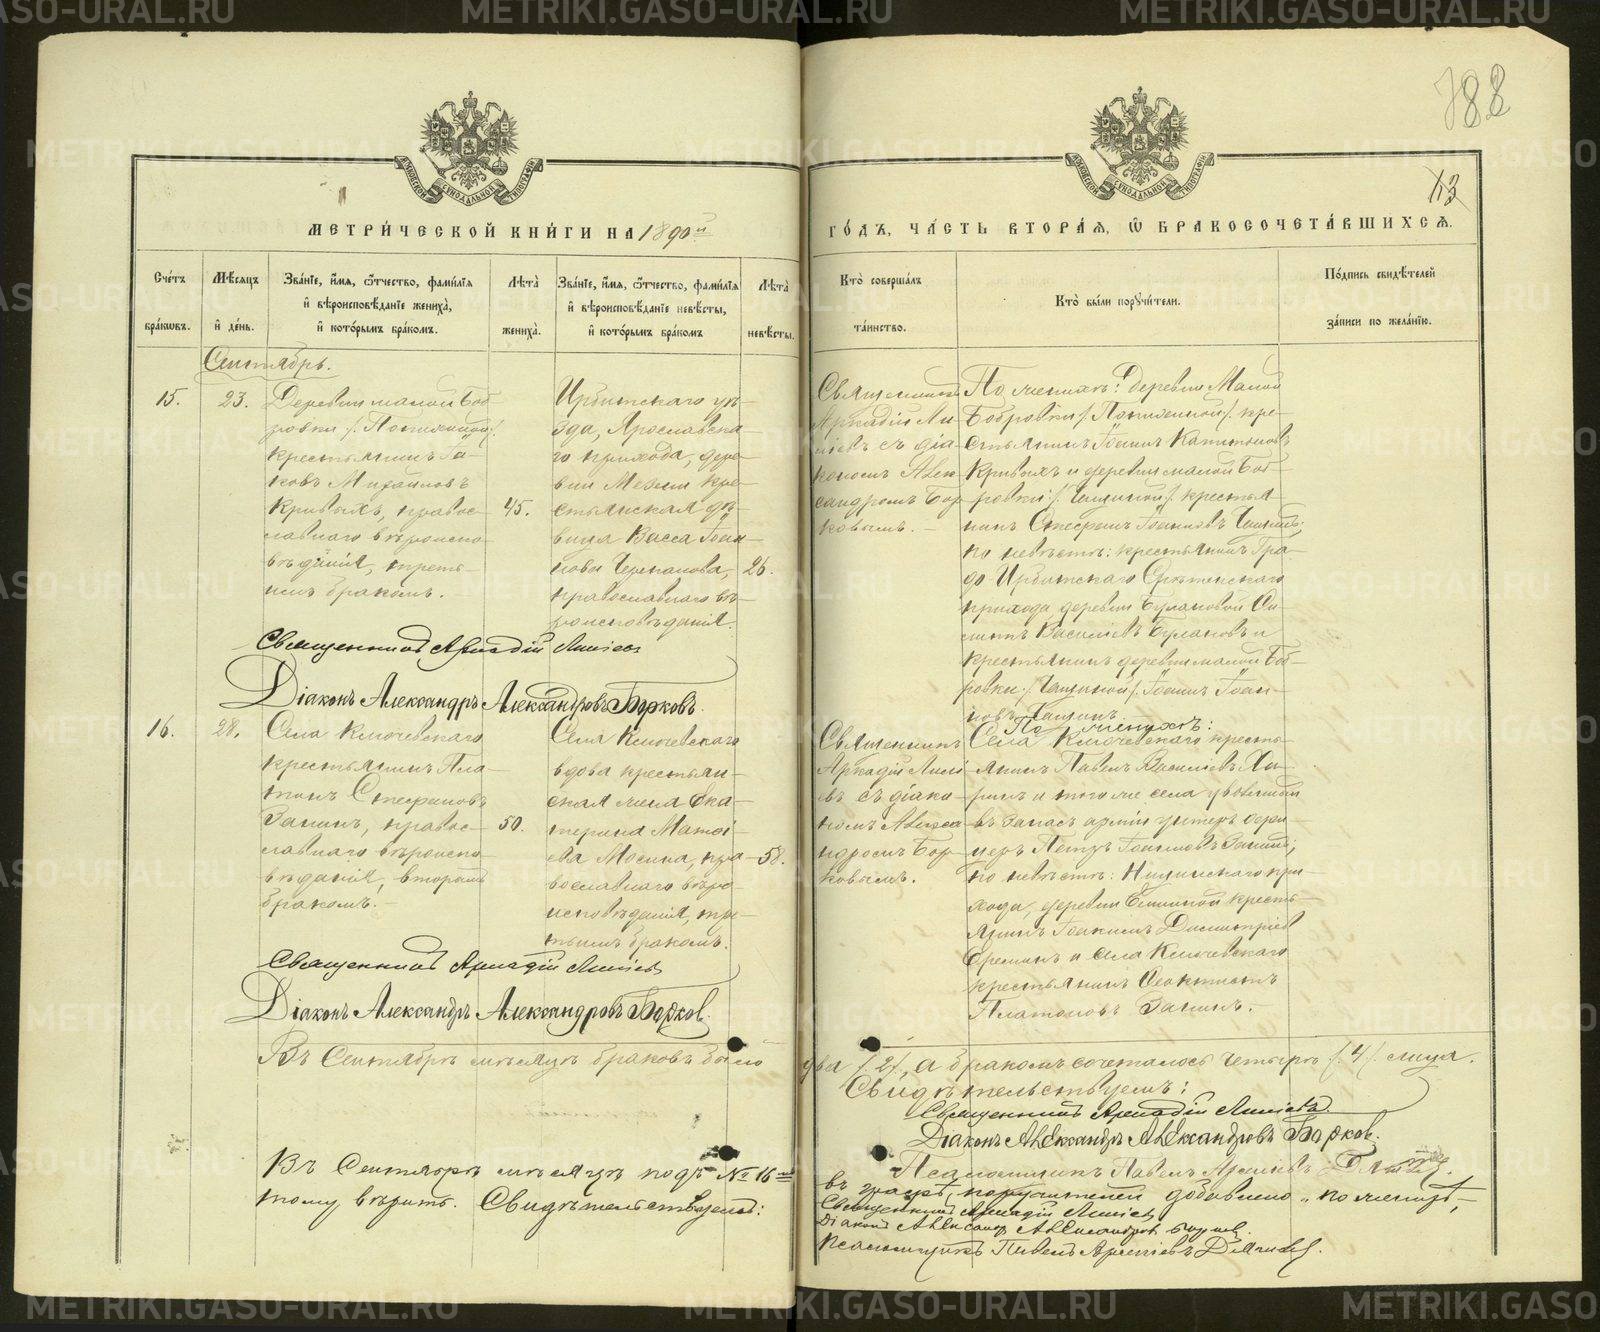 МЕТРИ́ЧЕСКОЙ КНИ́ГИ НА 1890й
ГО́ДЪ, ЧА́СТЬ ВТОРА́Я, Ѽ БРАКОСОЧЕТА́ВШИХСЯ.
788
13
Сче́тъ бра́кѡвъ.
Мѣ́сяцъ и де́нь.
Зва́нїе, и́мя, ѻ́тчество, фами́лїя и вѣроисповѣ́данїе жениха̀, и кото́рымъ бра́комъ.
Лѣта̀ жениха̀.
Зва́нїе, и́мя, ѻ́тчество, фами́лїя и вѣроисповѣ́данїе невѣ́сты, и кото́рымъ бра́комъ
Лѣта̀ невѣ́сты.
Кто̀ соверша́лъ та́инство.
Кто̀ бы́ли порꙋчи́тели.
По́дпись свидѣ́телей за́писи по жела́нїю.
Сентябрь.
15.
23.
Деревни малой Боб-
ровки /. Панишной /.
крестьянинъ Іа-
ковъ Михайловъ
Кривыхъ, правос-
лавнаго вѣроиспо-
вѣданія, треть-
имъ бракомъ.
45.
Ирбитскаго уѣ-
зда, Ярославска-
го прихода, дере-
вни Мезени кре-
стьянская дѣ-
вица Васса Іоан-
нова Черепанова,
православнаго вѣ-
роисповѣданія.
26.
Священникъ
Аркадій Ли-
съ діа-
кономъ Алек-
сандромъ Бор-
ковымъ. —
По женихѣ: деревни Малой
Бобровки /. Панишной /. кре-
стьянинъ Іоаннъ Капитоновъ
Кривыхъ и деревни малой Боб-
ровки /. Чащиной /. крестья-
нинъ Стефанъ Іоанновъ Чащинъ;
по невѣстѣ: крестьянинъ Гра-
до-Ирбитскаго Срѣтенскаго
прихода, деревни Булановой
Василіевъ Булановъ и
крестьянинъ деревни малой Боб-
ровки /. Чащиной /. Іоаннъ Іоан-
новъ Чащинъ.
Священникъ Аркадій
Діаконъ Александръ Александровъ Борковъ.
16.
28.
Села Ключевскаго
крестьянинъ Пла-
тонъ Стефановъ
Запинъ, правос-
лавнаго вѣроиспо-
вѣданія, вторымъ
бракомъ. —
50.
Села Ключевскаго
вдова крестьян-
ская жена Ека-
терина Матѳі-
ева Мосина, пра-
вославнаго вѣро-
исповѣданія, тре-
тьимъ бракомъ.
58.
Священникъ
Аркадій
съ діако-
номъ Алекса-
ндромъ Бор-
ковымъ.
По женихѣ:
Села Ключевскаго кресть-
янинъ Павелъ Василіевъ
и того же села уволенный
въ запасъ арміи унтеръ офи-
церъ Петръ Іоанновъ Запинъ;
по невѣстѣ: при-
хода, деревни кресть-
янинъ Іоакимъ Димитріев
Ереминъ и села Ключевскаго
крестьянинъ Ѳеоктистъ
Платоновъ Запинъ.
Священникъ Аркадій
Діаконъ Александръ Александровъ Борков.
Въ Сентябрѣ мѣсяцѣ браковъ было
два /. 2 /., а бракомъ сочеталось четыре /. 4 /. лица.
Свидѣтельствуемъ:
Священникъ Аркадій
Діаконъ Александръ Александровъ Борков.
Псаломщикъ Павелъ Арсеніевъ
Въ Сентябрѣ мѣсяцѣ подъ № 16мъ
въ графѣ поручителей добавлено „по женихѣ„
тому вѣрить. Свидѣтельствуемъ:
Священникъ Аркадій
Діаконъ Александръ Александров Борков.
Псаломщикъ Павелъ Арсеніевъ
METRIKI.GASO-URAL.RU